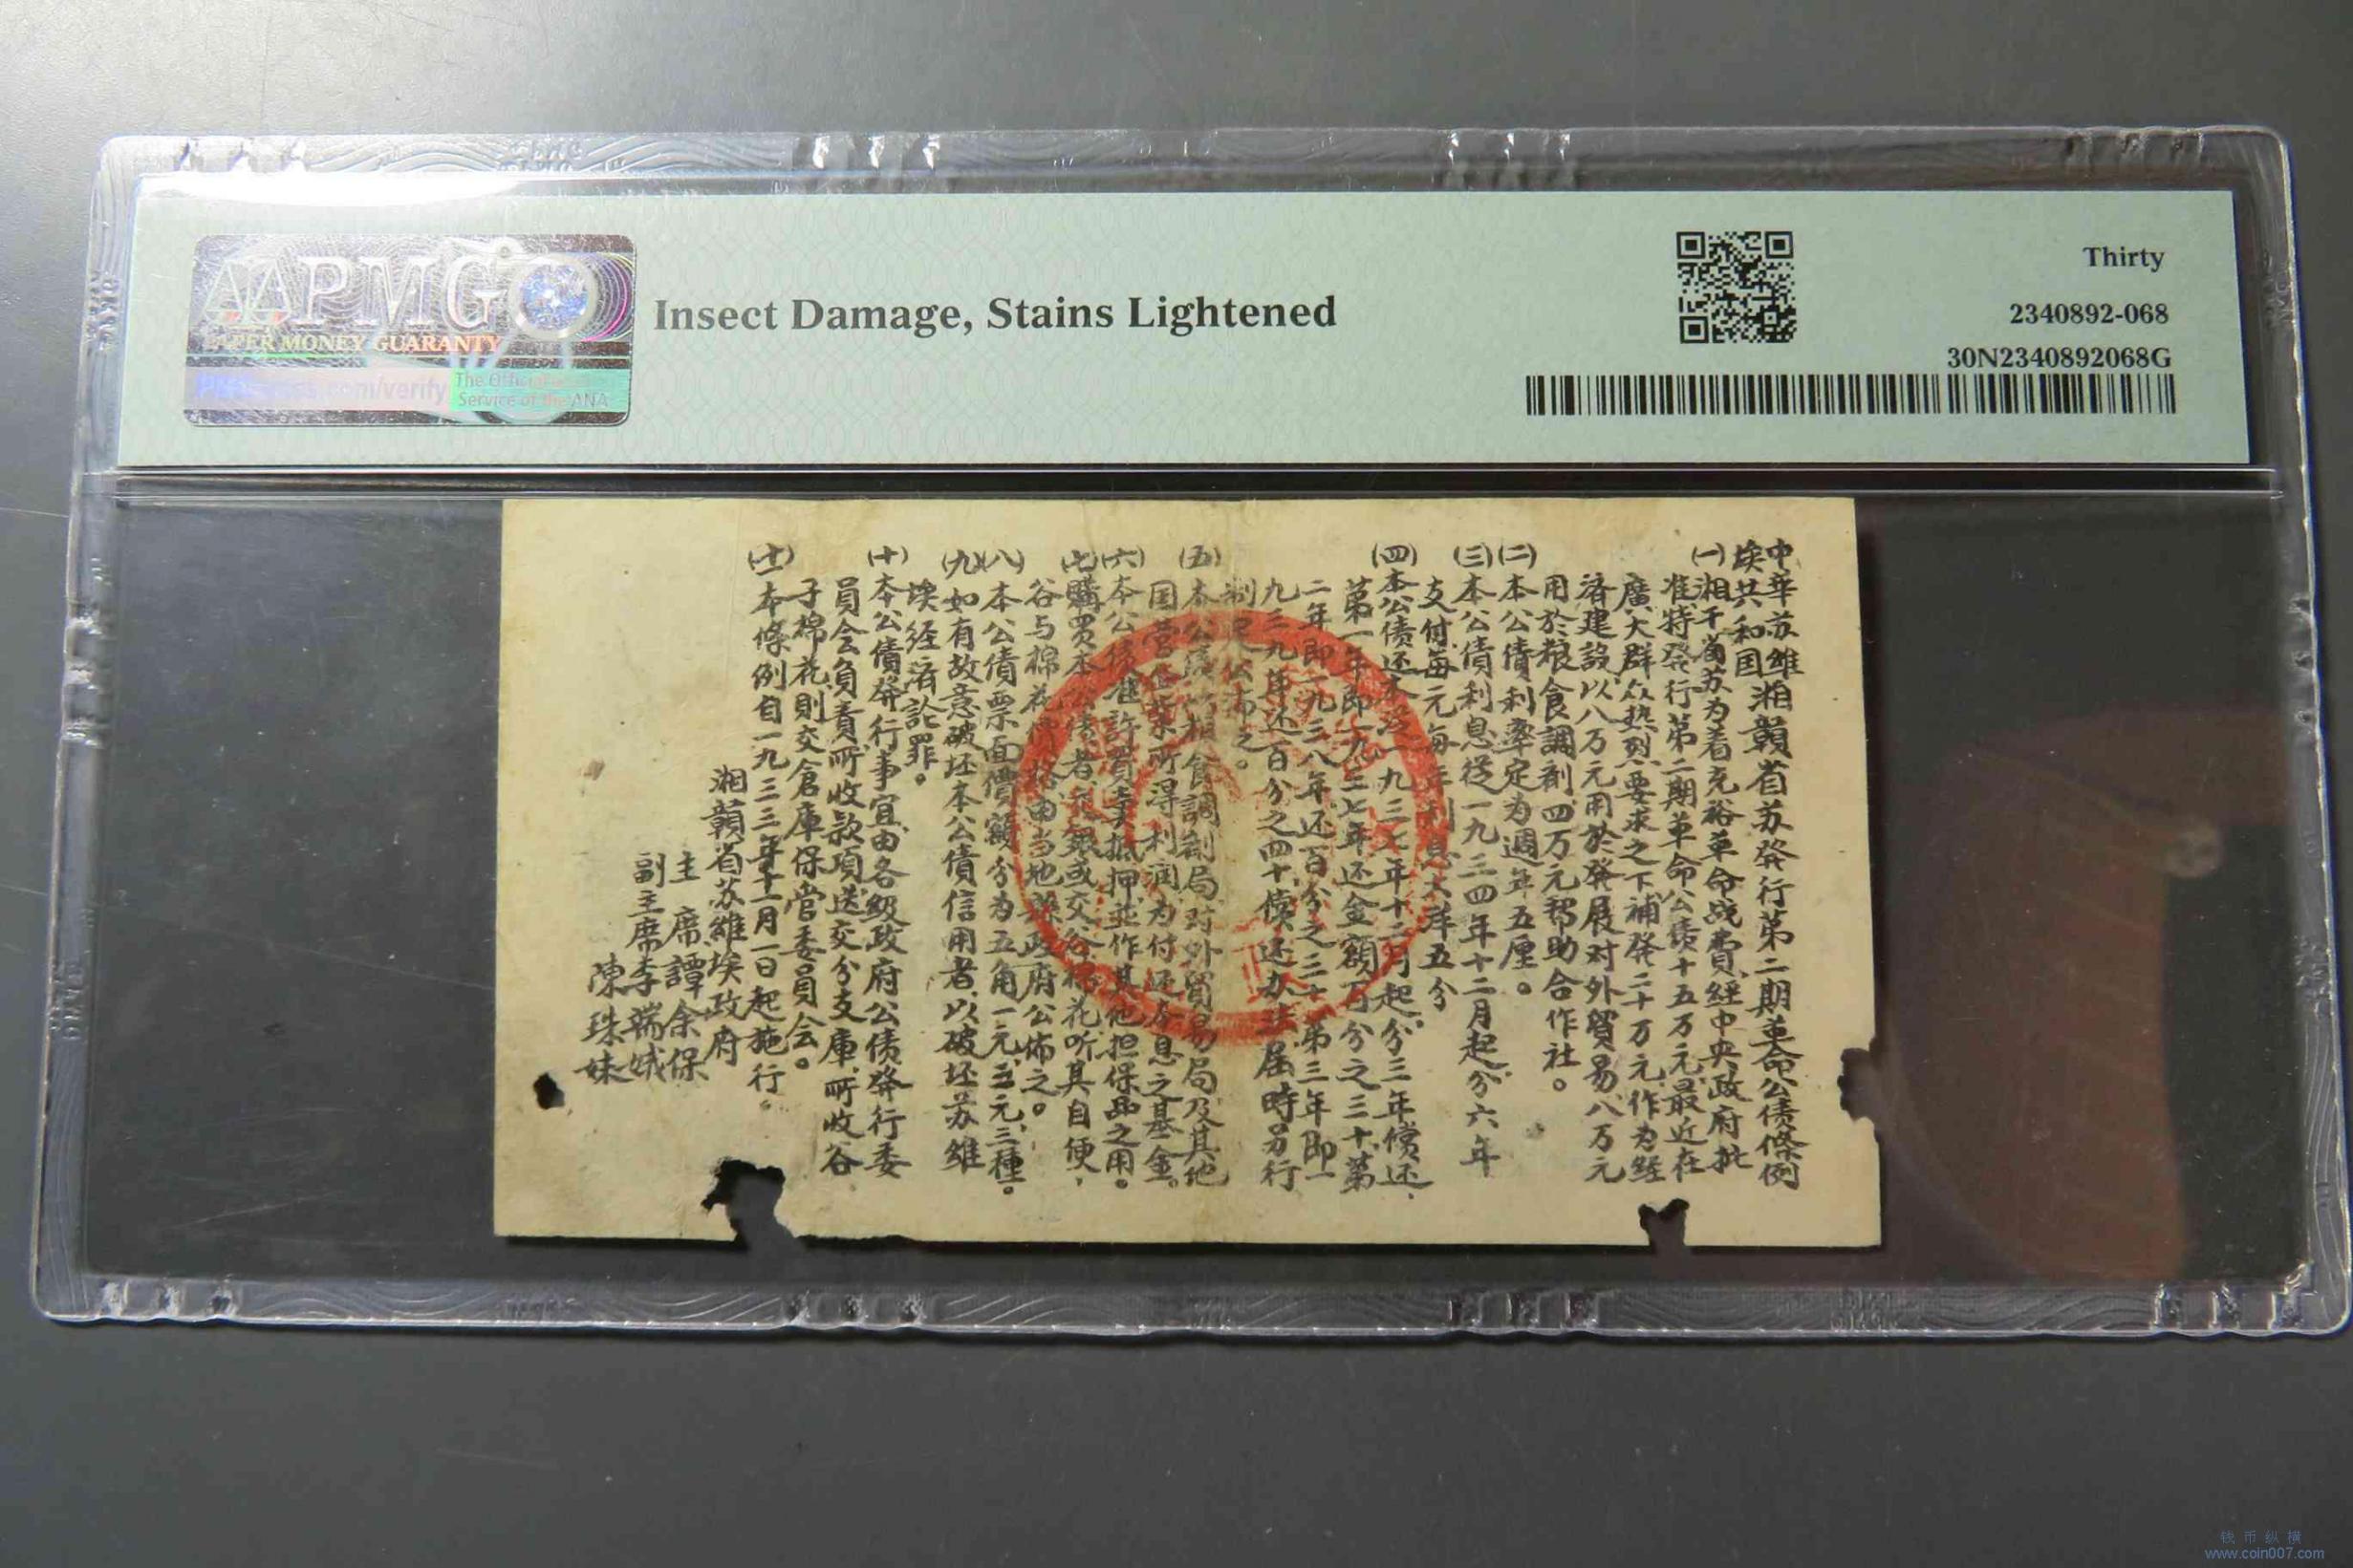 PMG
PAPER MONEY GUARANTY
The Official
Service of the ANA
Insect Damage, Stains Lightened
Thirty
2340892-068
30N2340892068G
中華苏維
埃共和国
湘贛省苏發行第二期革命公債條例
(一)湘干省苏为着充裕革命战費、經中央政府批
准、特發行第二期革命公債十五万元、最近在
廣大群众热烈要求之下補發二十万元、作为經
济建設、以八万元用於發展对外貿易、八万元
用於粮食調剂、四万元帮助合作社。
(二)本公債利率定为週年五厘。
(三)本公債利息從一九三四年十二月起、分六年
支付、每元每年利息大洋五分
(四)本公債还本從一九三七年十二月起、分三年償还、
第一年即一九三七年还金額百分之三十、第
二年即一九三八年、还百分之三十、第三年即一
九三九年还百分之四十、償还办法、届時另行
制定公布之。
(五)本公債以粮食調剂局、对外貿易局及其他
国营企業所得利潤、为付还本息之基金。
(六)本公債准許買卖抵押、並作其他担保品之用。
(七)購買本公債者、交銀或交谷棉花听其自便、
谷与棉花價格由当地政府公佈之。
(八)本公債票面價額分为五角、一元、二元、三種。
(九)如有故意破坯本公債信用者、以破坯苏維
埃經济論罪。
(十)本公債發行事宜、由各級政府公債發行委
員会負責、所收款項、送交分支庫、所收谷
子棉花、則交倉庫保管委員会。
(十一)本條例自一九三三年十一月一日起施行。
湘贛省苏維埃政府
主 席 譚余保
副主席 李端娥
陳珠妹
钱币纵横
www.coin007.com